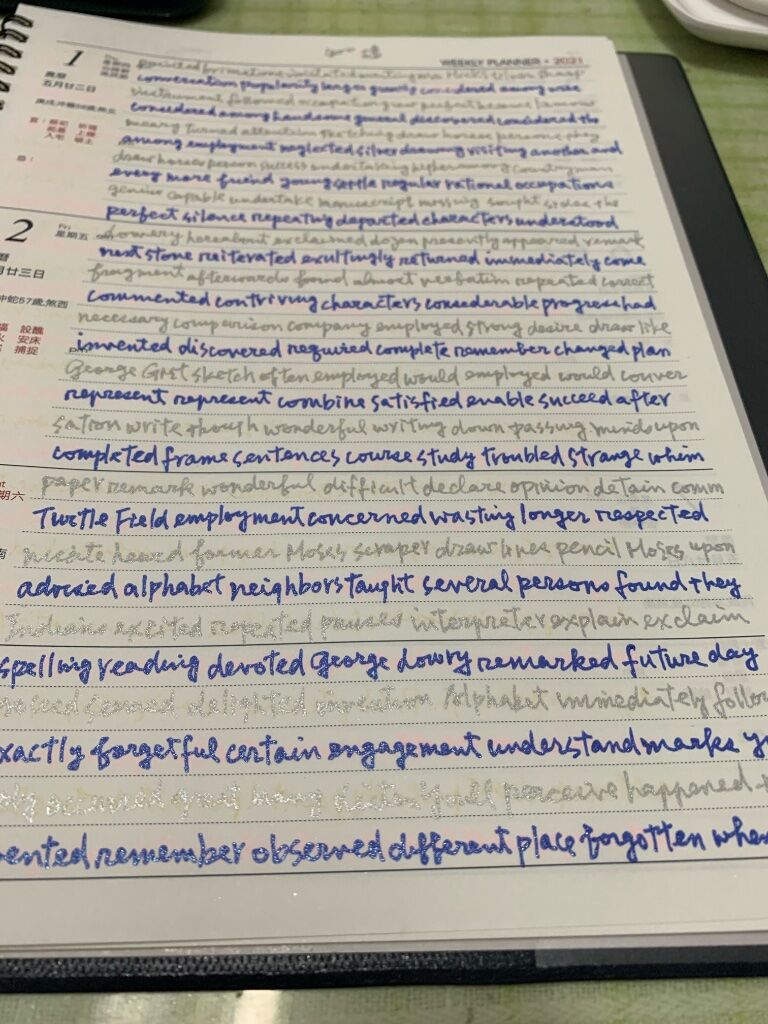 WEEKLY PLANNER • 2021
1
農曆
五月廿二日
conversation popularity longer considered among wise
instrument followed occupation grew perfect became famous
considered among handsome general discovered considered the
many turned attention sketching draw horses persons they
among employment neglected silver drawing visiting another and
draw horse person success undertaking higher among countryman
every more friend young settle regular rational occupations
genius capable undertake manuscript sought
perfect silence repeating departed characters understood
2
Fri
星期五
exclaimed dozen presently appeared remark
next stone reiterated exultingly returned immediately come
月廿三日
fragment afterwards found almost verbatim repeated correct
沖蛇57歲,煞西
commented contriving characters considerable progress had
necessary comparison company employed strong desire draw like
設醮
安床
捕捉
invented discovered required complete remember changed plan
George Gist sketch often employed would employed would conver
represent represent combine satisfied enable succeed after
sation write though wonderful writing down passing minds upon
completed frame sentences course study troubled strange whim
期六
paper remark wonderful difficult declare opinion detain comm
Turtle Field employment concerned wasting longer respected
nicate heard former Moses scraper draw lines pencil Moses upon
alphabet neighbors taught several persons found they
Indians excited repeated pauses interpreter explain exclaim
spelling reading devoted George Lowry remarked future day
delighted invention Alphabet immediately follow
xactly forgetful certain engagement understand marks
occurred great many perceive happened
ented remember observed different place forgotten when